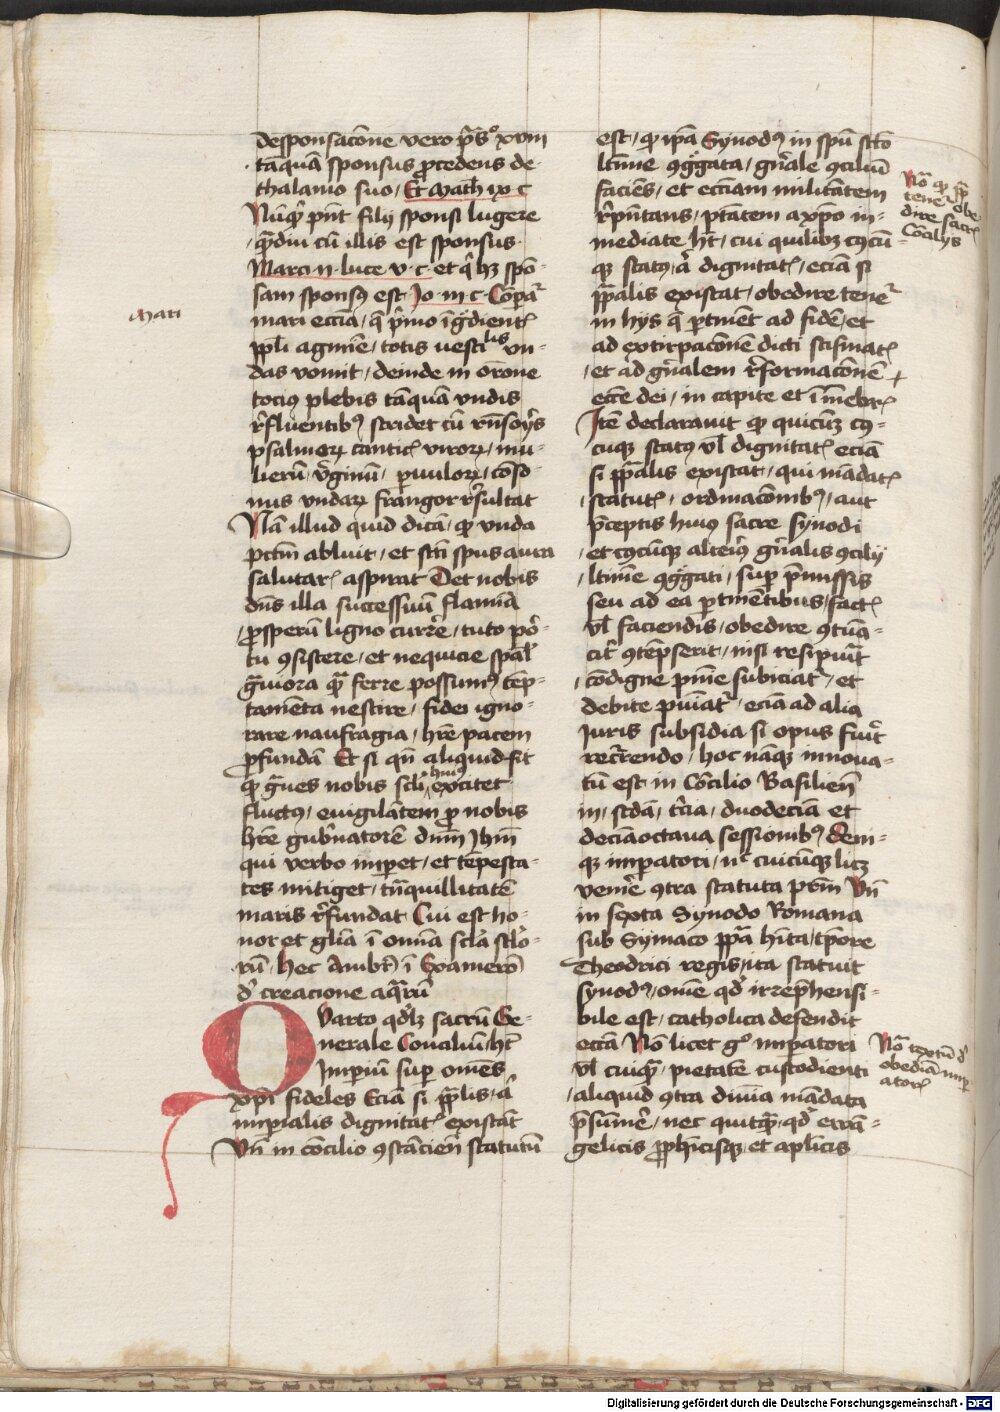 desponsacōne vero p̄s° xviii
tāquā sponsus ꝓcedens de
thalamo suo / Et Math ix c
Nūqͥd pn̄t filij sponsi lugere
qͣdiu cū illis est sponsus
Marci ii luce v c et qͥ hꝫ spō-
sam sponsꝰ est Jo iii c Cōpaͬ
mari eccīa / q̄ pͥmo īgͤdientꝭ
ppl̄i agmīe / totis vestilis vn-
das vomit / deinde in orōne
tociꝰ plebis tāquā vndis
rͤfluentibꝰ stridet cū rn̄soꝝs
psalmoꝝ canticꝭ viroꝝ / mu-
lierū / vͥginū / pͣvuloꝝ / cōso-
nus vndaꝝ frangor rͤsultat
Nā illud quid dicā / ꝙ vnda
pctm̄ abluit / et sctī spūs aura
salutarꝭ aspirat Det nobis
dn̄s illa successiuū flamīa
ꝓsperū ligno curre / tuto pōr-
tu ꝯsistere / et nequicie spal̄
gͣuiora qͣ ferre possumꝰ tēp-
tamēta nescire / fidei igno-
rare naufragia / hr̄e pacem
ꝓfundā Et si qn̄ aliquid fit
ꝙ gͣues nobis scl̄i huiꝰ excitet
fluctꝰ / euigilātem ꝓ nobis
hr̄e gubͤnatorē dnm̄ Jhm̄
qui verbo impet / et tēpesta-
tes mitiget / tn̄quillitatē
maris rͤfundat Cui est ho-
nor et gl̄ia ī omīa scl̄a sclo-
rū / hec Ambrͦ ī Exameroͫ
dͤ creacione aqͣrū
Quarto qd̄lꝫ sacrū Ge-
nerale Conciliū / hꝫ
Imperiū sup omēs
xpī fideles Eciā si pp̄alis / aͧ
impialis dignitatꝭ existāt
Vn̄ in cōcilio ꝯstāciēn statutū
est / ꝙ ip̄a Synodꝰ in spū sctō
ltīme ꝯgͤgata / gn̄ale ꝯciliū
faciēs / et eccīam militātem
rͤpn̄tans / ptātem a xp̄o im-
mediate hꝫ / cui quilibꝫ cꝰcū-
qꝫ statꝰ / aͧ dignitatꝭ / eciā si
pp̄alis existat / obedire teneͬ
in hijs q̄ ꝑtinēt ad fidē / et
ad extirpacōnē dicti scismatꝭ
/ et ad gn̄alem rͤformacōnē
ecce dei / in capite et ī mēbrꝭ
Itē declarauit ꝙ quicūqꝫ cꝰ-
cuqꝫ statꝰ vl̄ dignitatꝭ eciā
si pp̄alis existat / qui mādatꝭ
/ statutꝭ / ordinacōnibꝰ / aut
p̄ceptis huiꝰ sacre synodi
/ et cꝰcūqꝫ alteriꝰ gn̄alis ꝯcilij
/ ltīme ꝯgͤgati / sup p̄missis
seu ad ea ꝑtinētibus / factꝭ
vl̄ faciendis / obedire ꝯtūa-
citͬ ꝯtēpserit / nisi resipuͥt
/ cōdigne pnīe subiciatͬ / et
debite puīatͬ / eciā ad alia
Juris subsidia si opus fuͥt
recurͤendo / hoc nāqꝫ innoua-
tū est in Cōcilio Basilien̄
in / scd̄a / tͨcia / duodecīa et
decīaoctaua sessionibꝰ Deni-
qꝫ imperatori / nͨ cuicūqꝫ licꝫ
venire ꝯtra statuta prm̄ Vn̄
in sexta Synodo Romana
sub Symaco pp̄a hīta / tpore
Theodrici regis / ita statuit
synodꝰ / om̄e qd̄ irrephensi-
bile est / catholica defendit
eccīa Nō licet g° imperatori
vl̄ cuiqͣ / pietatē custodienti
/ aliquid ꝯtra diuīa mādata
p̄sumͤe / nec quitqͣ / qd̄ ewā-
gelicis ꝓpheticisqꝫ et aplicis
Mari
Nō ꝙ pp̄a
teneͬ obe
dire sacrꝭ
Cōcilijs
Nō textū dͤ
obediā imp
atorꝭ
Digitalisierung gefördert durch die Deutsche Forschungsgemeinschaft - DFG